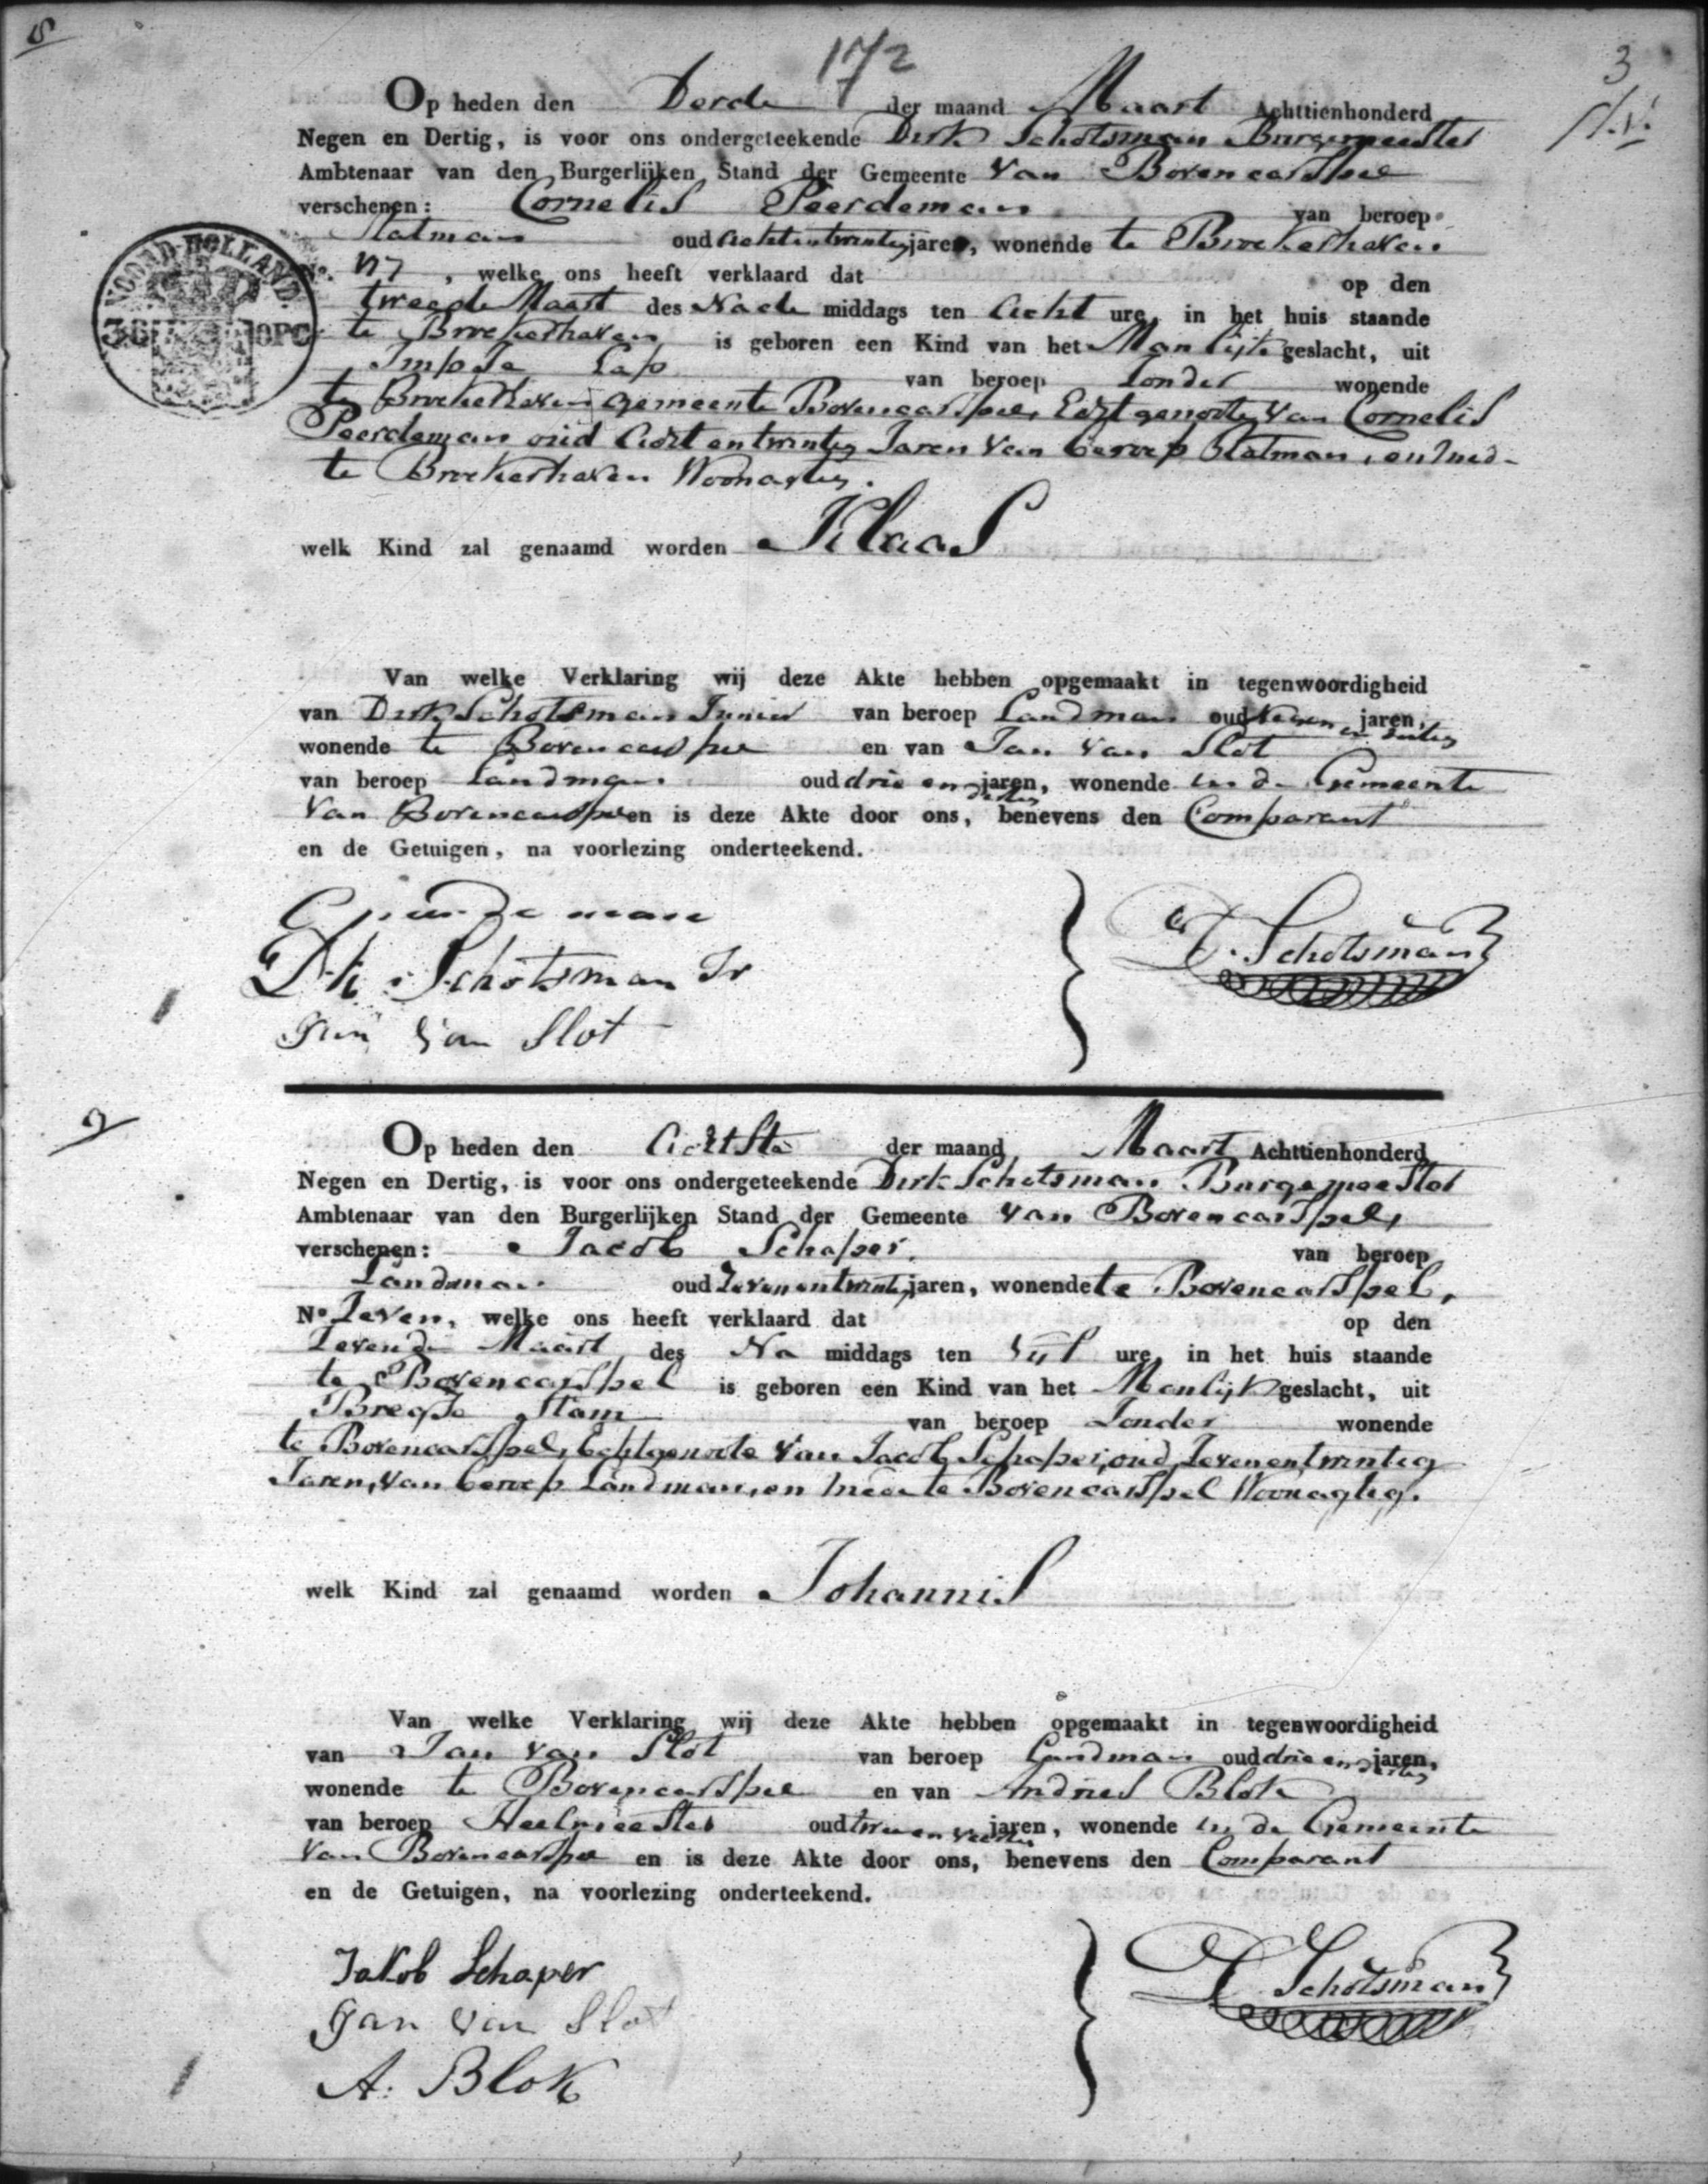 8
172
3
Op heden den Derde der maand Maart Achttienhonderd
Negen en Dertig, is voor ons ondergeteekende Dirk Schotsman Burgemeester
Ambtenaar van den Burgerlijken Stand der Gemeente van Bovencarspel
verschenen: Cornelis Peerdeman van beroep
oud acht en twintig jaren, wonende te Broekerhaven
No. , welke ons heeft verklaard dat op den
tweede Maart des Nade middags ten Acht ure, in het huis staande
te Broekerhaven is geboren een Kind van het Manlijk geslacht, uit
Impje Lap van beroep Zonder wonende
te Broekerhaven gemeente Bovencarspel, Echtgenoote van Cornelis
Peerdeman oud Acht en twintig Jaren van beroep
te Broekerhaven Woonagtig.
welk Kind zal genaamd worden Klaas
Van welke Verklaring wij deze Akte hebben opgemaakt in tegenwoordigheid
van Dirk Schotsman Junior van beroep Landman oud jaren,
wonende te Bovencarspel en van Jan van Slot
van beroep Landman oud drie en dertig jaren, wonende in de Gemeente
van Bovencarspel en is deze Akte door ons, benevens den Comparant
en de Getuigen, na voorlezing onderteekend.
C peerdeman
Dk Schotsman Jr
Jan van Slot
D. Schotsman
NOORD-HOLLAND
9
Op heden den Achtste der maand Maart Achttienhonderd
Negen en Dertig, is voor ons ondergeteekende Dirk Schotsman Burgemeester
Ambtenaar van den Burgerlijken Stand der Gemeente van Bovencarspel,
verschenen: Jacob Schaper. van beroep
Landman oud Zeven en twintig jaren, wonende te Bovencarspel,
No Zeven, welke ons heeft verklaard dat op den
Zevende Maart des Na middags ten Vijf ure, in het huis staande
te Bovencarspel is geboren een Kind van het Manlijk geslacht, uit
Bregje Stam van beroep Zonder wonende
te Bovencarspel, Echtgenoote van Jacob Schaper, oud Zeven en twintig
Jaren, van beroep Landman, en mede te Bovencarspel Woonagtig.
welk Kind zal genaamd worden Johannis
Van welke Verklaring wij deze Akte hebben opgemaakt in tegenwoordigheid
van Jan van Slot van beroep Landman oud drie en dertig jaren,
wonende te Bovencarspel en van Andries Blok
van beroep Heelmeester oud twee en veertig jaren, wonende in de Gemeente
van Bovencarspel en is deze Akte door ons, benevens den Comparant
en de Getuigen, na voorlezing onderteekend.
Jakob Schaper
Jan van Slot
A: Blok
D. Schotsman